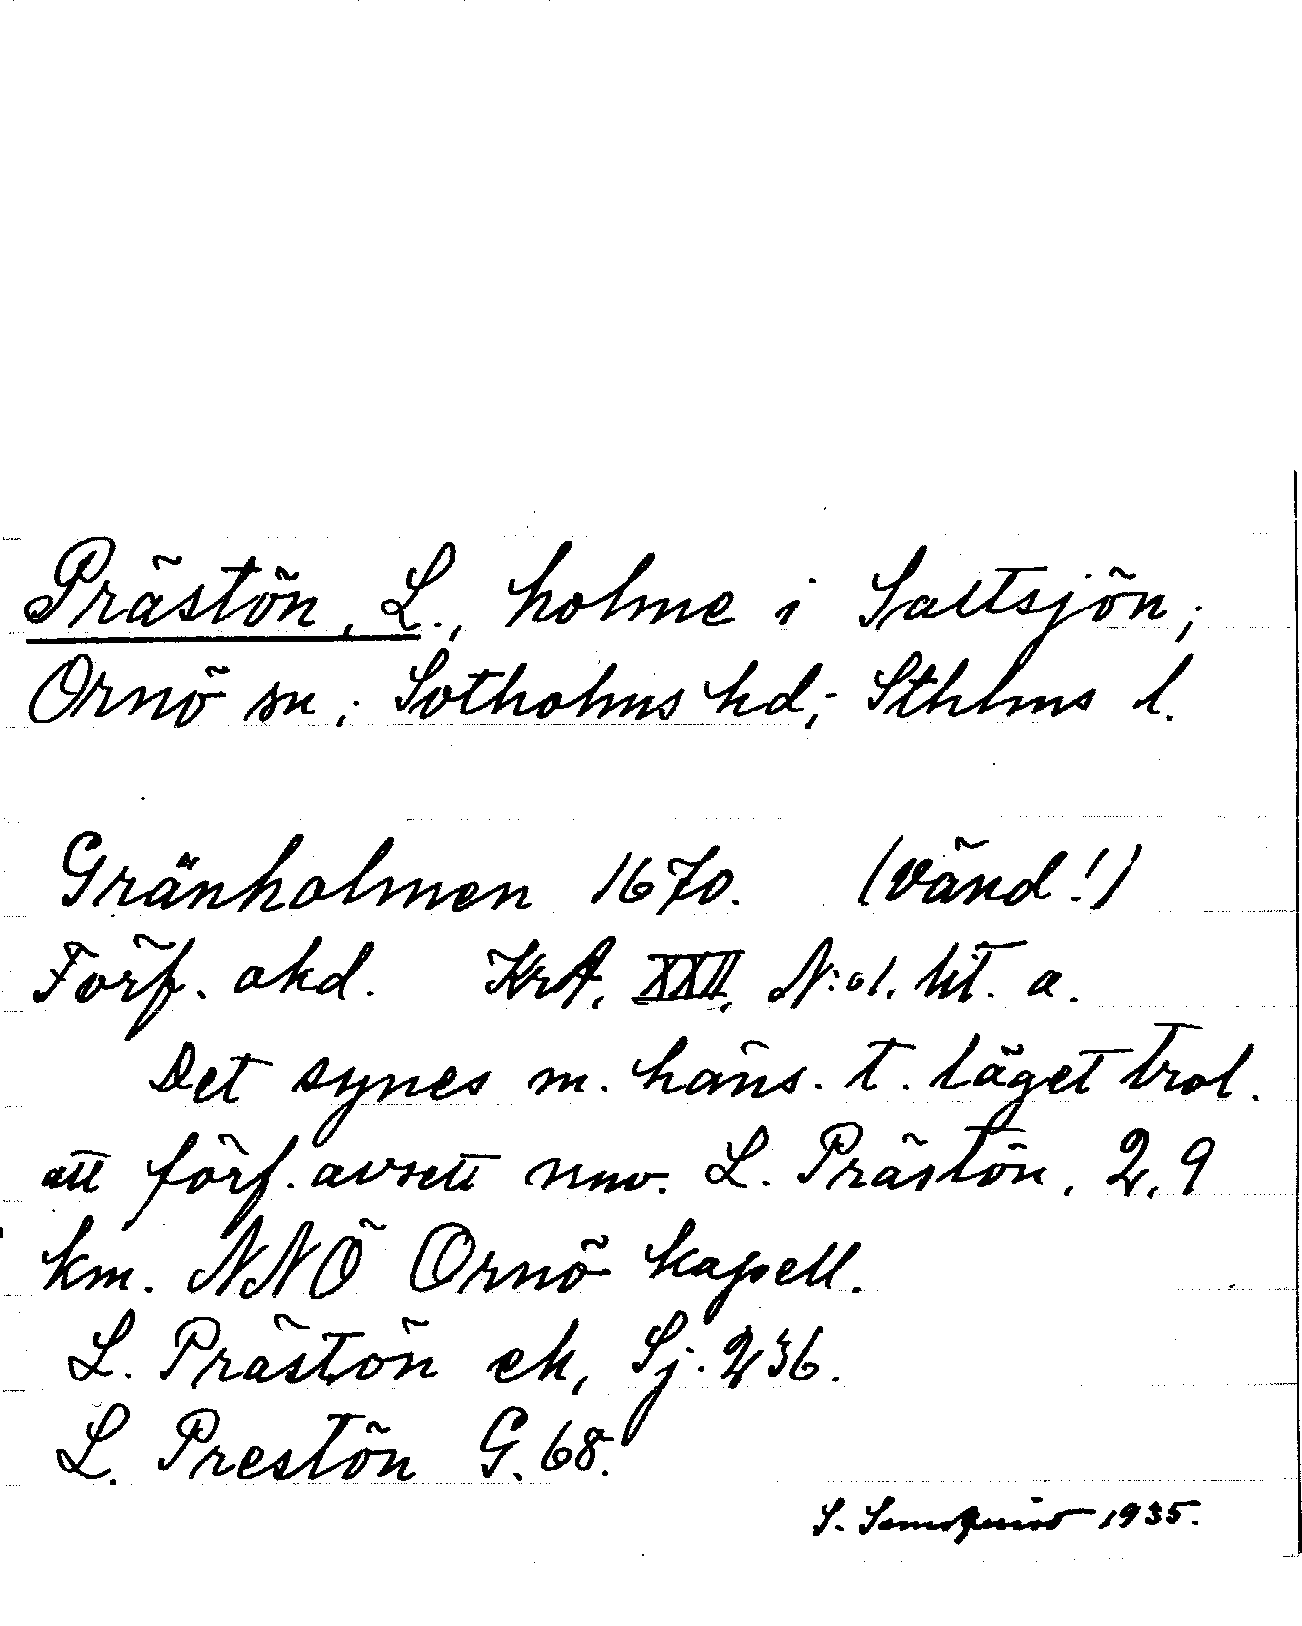 Prästön, L., holme i Saltsjön;
Ornö sn; Sotholms hd; Sthlms l.
Gränholmen 1670. (vänd!)
Förf. okd. KrA, XXII, N:o1. lit. a.
Det synes m. häns. t. läget trol.
att förf. avsett nuv. L. Prästön, 2,9
km. NNÖ Ornö kapell.
L. Prästön ek, Sj. 236.
L. Prestön G. 68.
S. 1935.